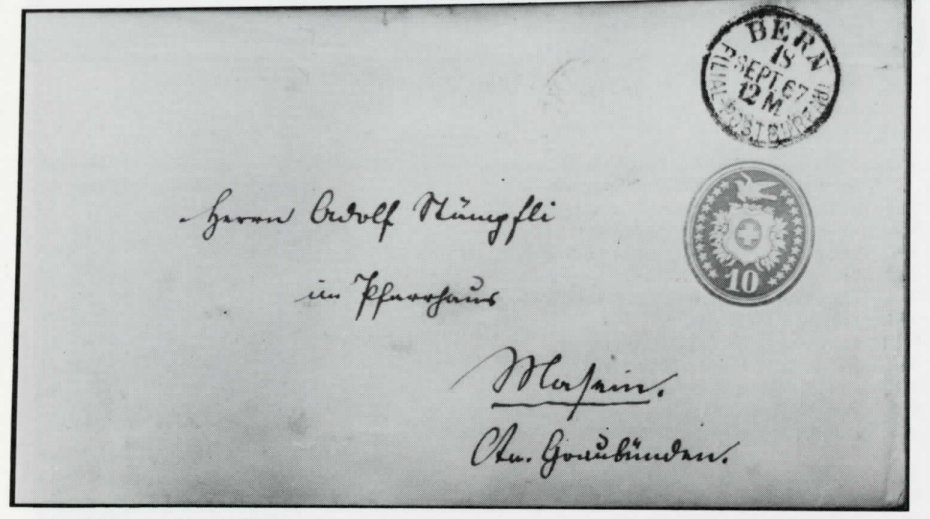 BERN
18
SEPT. 67
12 M
FILIAL-POSTBUREAU
10
Herrn Adolf Stämpfli
im Pfarrhaus
Masein.
Ctn. Graubünden.